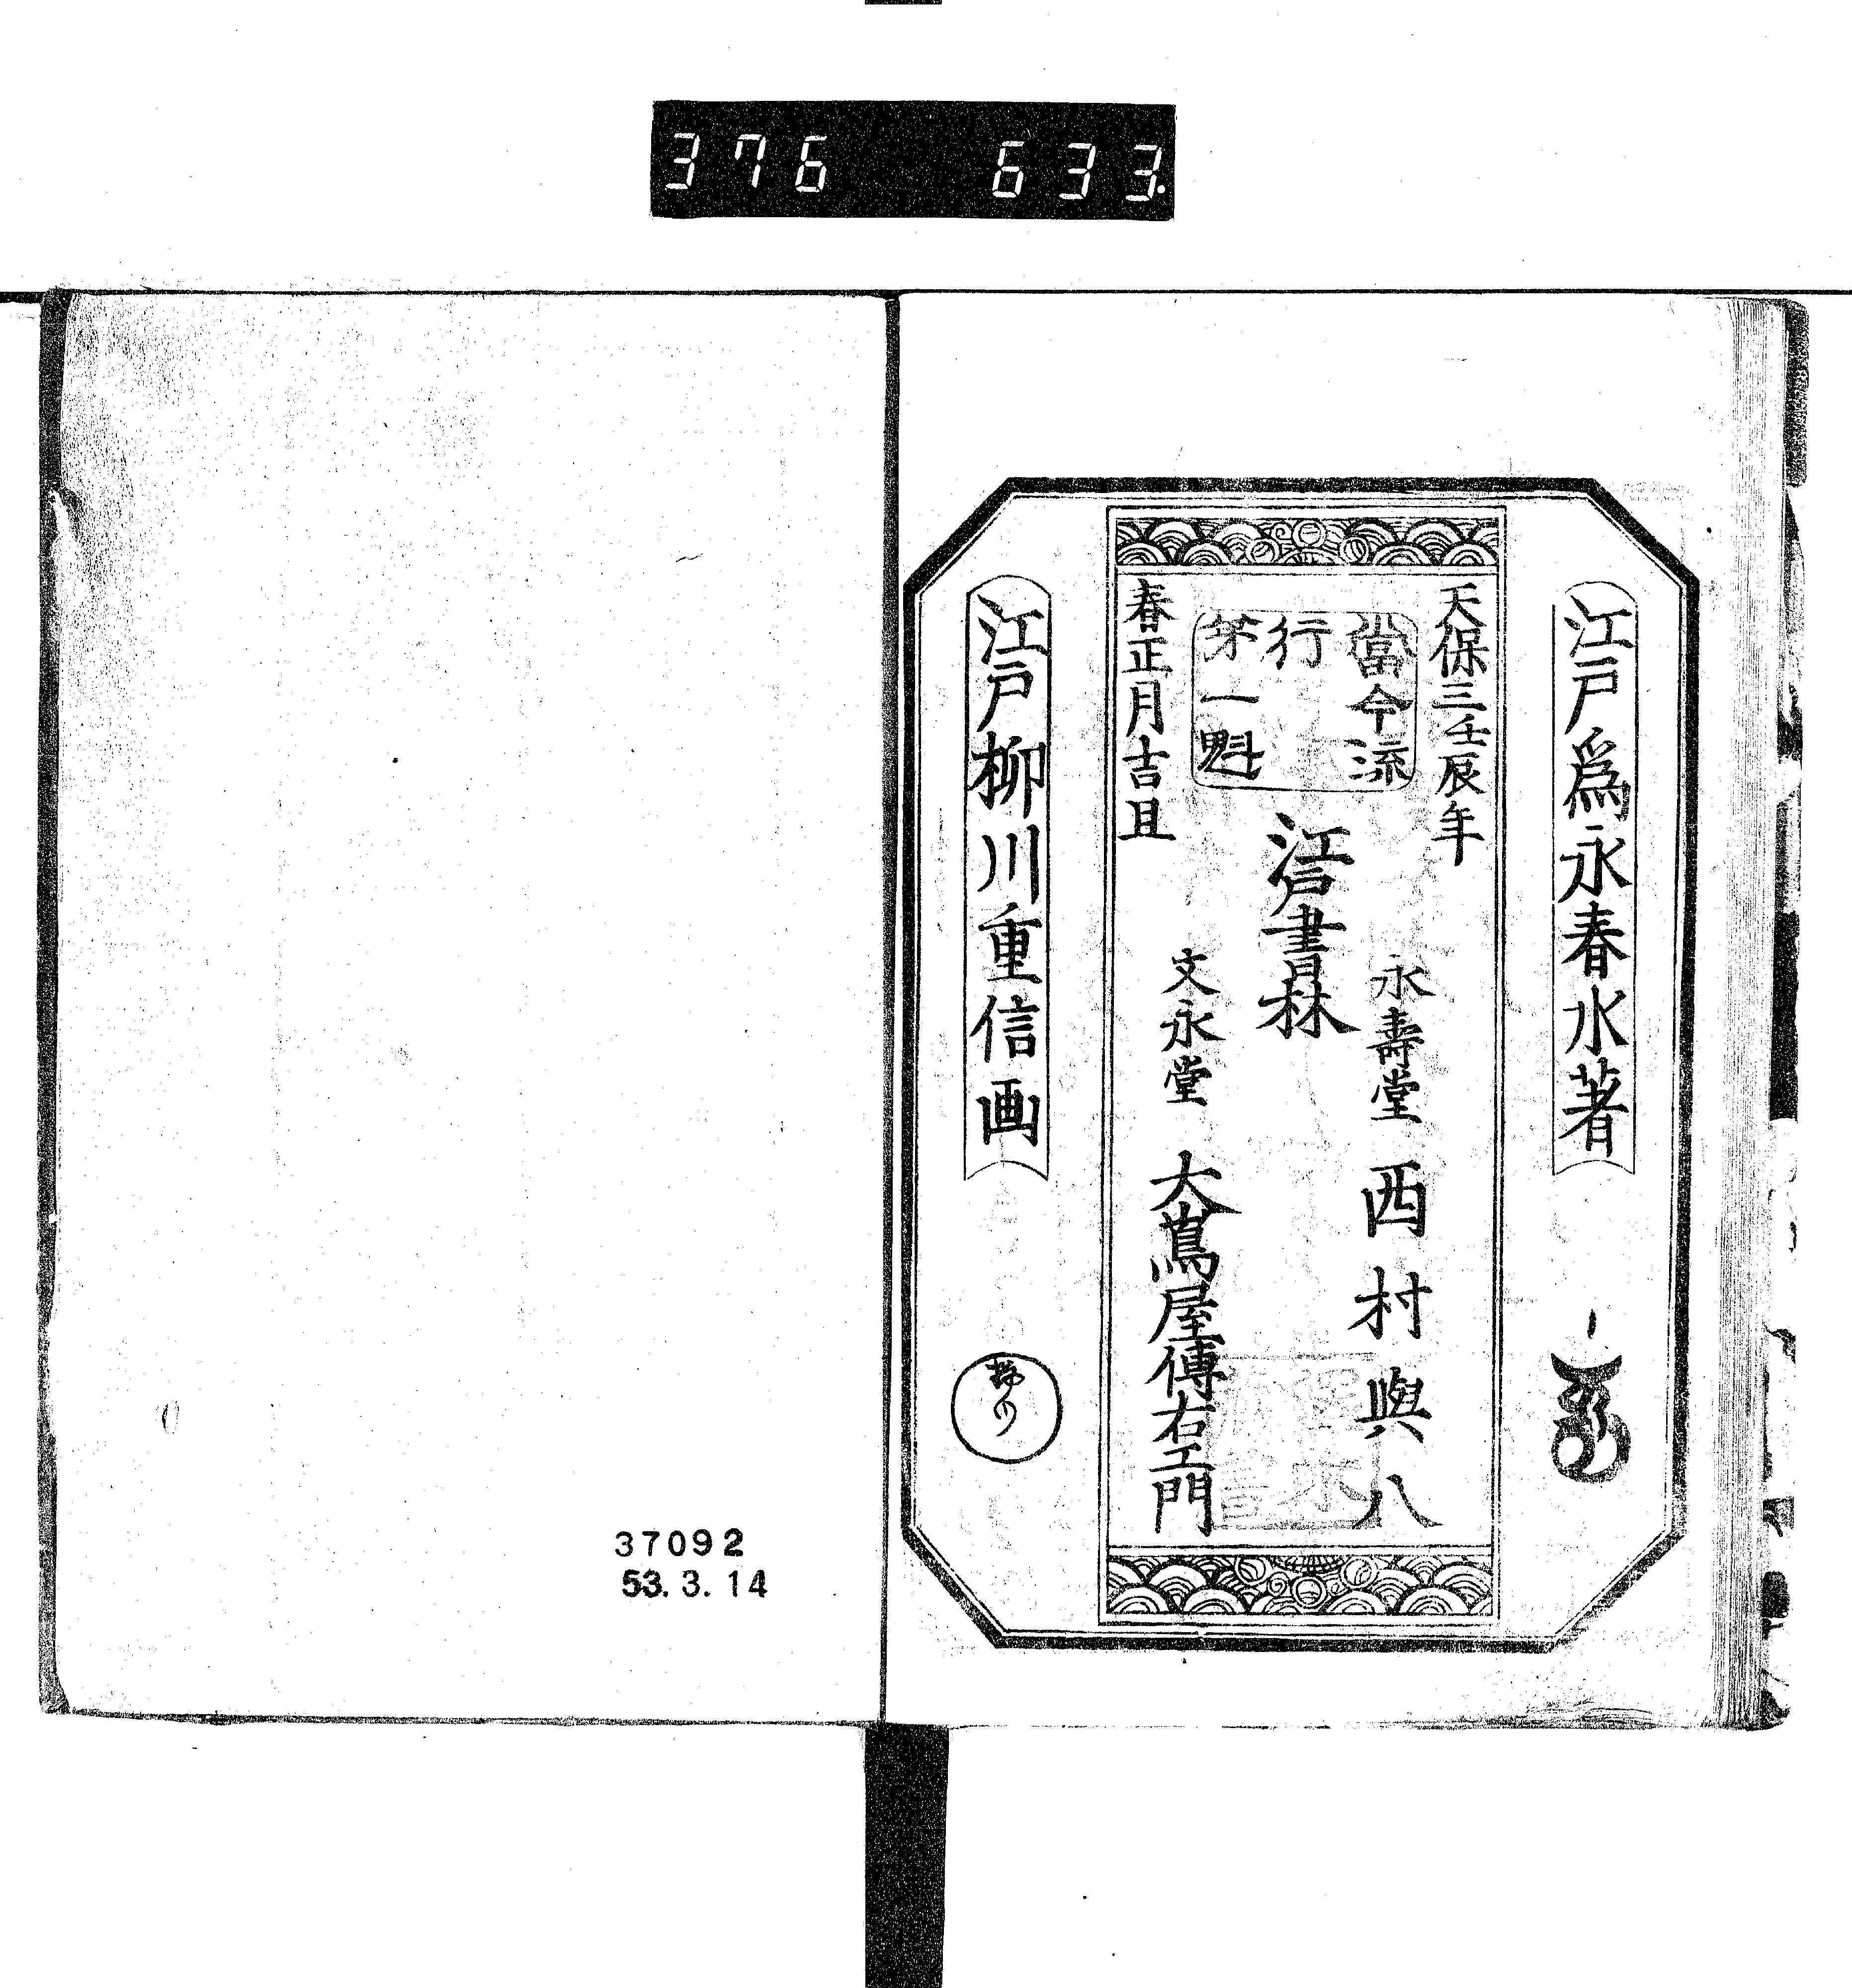 376 633.
江戸爲永春水著
天保三壬辰年
當今流
行
第一魁
春正月吉旦
江戸書林
永壽堂 西村與八
文永堂 大蔦屋傳右エ門
江戸柳川重信画
37092
53.3.14